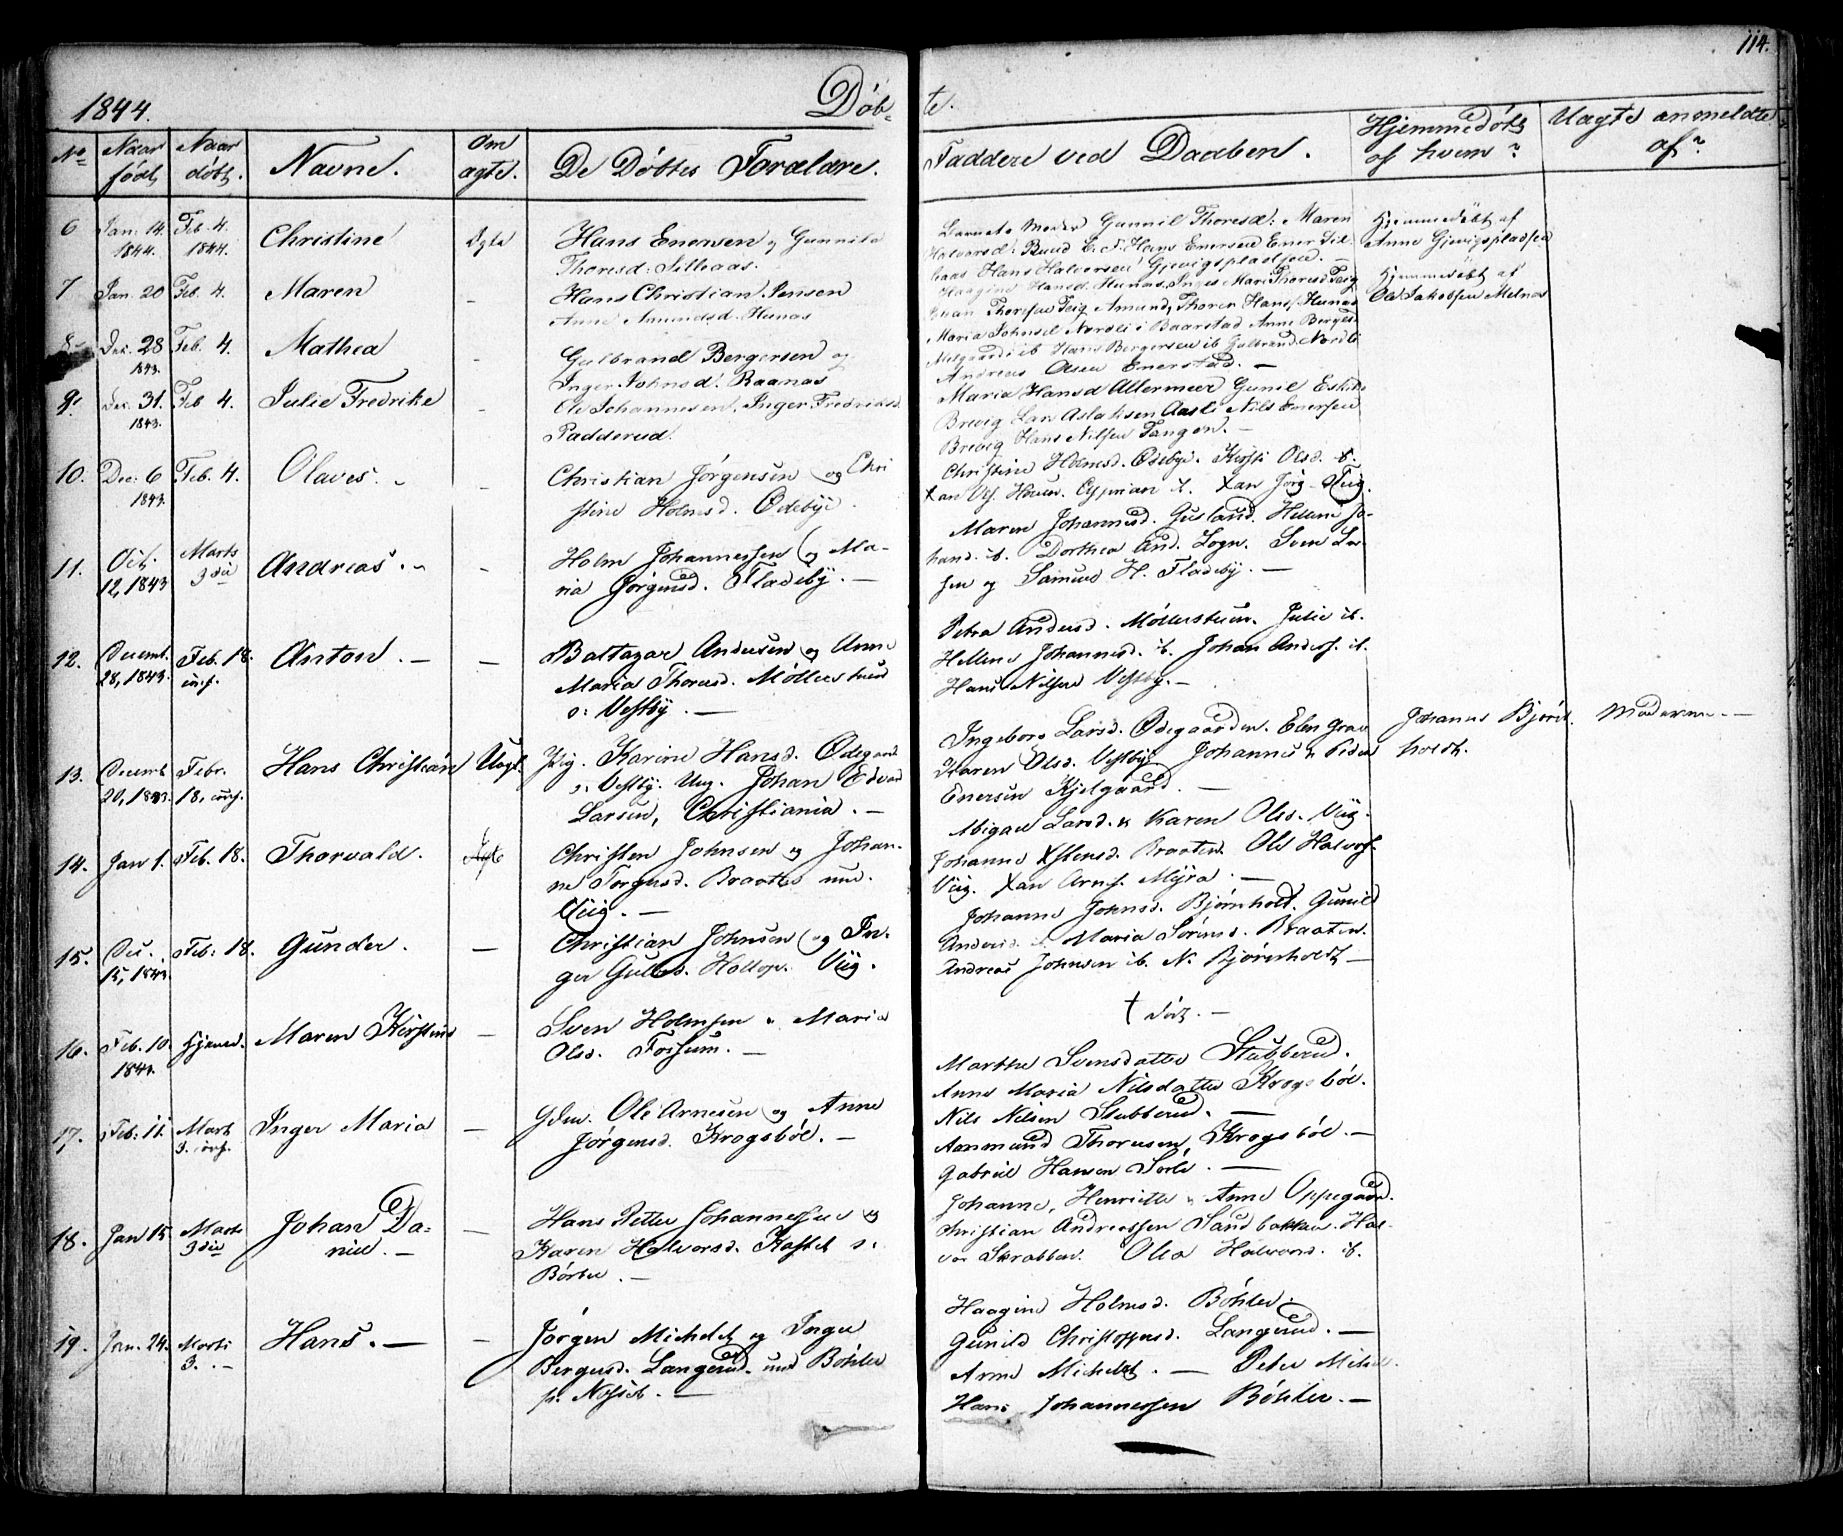 114.
1844.
Døb-
te.
No
Naar født
Naar døbt.
Navne.
Om ægte.
De Døbtes Forældre.
Faddere ved Daaben.
Hjemmedøbt af hvem?
Uægte anmeldte af?
6
Jan: 14. 1844.
Feb. 4. 1844.
Christine
Ægte
Hans Enersen og Gunnild
Thoresd:
Barnets Moder Gunnil Thoresd: Maren
Halvorsd: Hans Enersen Ener
Hans Halvorsen Gjevigspladsen. —
Hjemmedøbt af
Anne Gjevigspladsen
7
Jan. 20
Feb. 4.
Maren
-
Hans Christian Jensen
Anne Amundsd. Hunas
Haagine Hansd. Hunas, Inger Mari Thoresd Teig
Thoresen Teig Amund, Thoren Hans, Hunas
Hjemmedøbt af
Ole Jakobsen Melnas
8
Dec. 28 1843.
Feb. 4.
Mathea
-
Gulbrand Bergersen og
Inger Johnsd. Raanas
Maria Johnsd Nordli i Baarstad Anne Bergersd
Melgaard ib Hans Bergersen ib Gulbrand Nordli
Andreas Olsen Enerstad. —
9
Dec. 31. 1843.
Feb 4.
Julie Fredrike
-
Ole Johannesen, Inger Fredriksd.
Padderud.
Maria Hansd Allermeer Gunil
Brevig Lars Aslaksen Aasli Nils Enersen
Brevig Hans Nilsen Tangen. —
10.
Dec: 6 1843.
Feb. 4.
Olaves.
-
Christian Jørgensen og Chri
stine Holmsd. Ødebye.
Christine Holmsd. Ødebye. Kirsti Olsd. ib.
Cyprian ib. Xan Jørg. Teig.
11.
Oct. 12, 1843
Marts 3die
Andreas.
-
Holm Johannessen og Ma-
ria Jørgensd. Fladeby. —
Maren Johannesd. Gusland. Hellene Jo-
hand. ib. Dorthea And. Sogn. Sven Lar
sen og Samuel H. Fladeby. —
12.
Decemb. 28, 1843.
Feb. 18.
Anton. —
—
Baltazar Andersen og Anne
Maria Thoresd. Møllerstuen
s: Vestby. —
Petra Andersd. Møllerstuen. Julie ib.
Hellene Johannesd. ib. Johan Anders. ib.
Hans Nilsen Vestby. —
13.
Decemb 20, 1843.
Febr. 18,
Hans Christian
Uægt.
Pig. Karine Hansd. Ødegaard
s. Vestby. Ung. Johan Edvard
Larsen, Christiania. —
Ingeborg Larsd. Ødegaarden. Elen
Karen Olsd. Vestby. Johannes & Peder
Enersen Kjelgaard. —
Johannes Bjørn-
holdt.
Moderen. —
14.
Jan 1.
Feb. 18.
Thorvald.
Ægte
Christen Johnsen og Johan-
ne Torgersd. Braaten und.
Viig. —
Abigael Larsd. & Karen Olsd. Viig.
Johanne Xstensd. Braaten. Ole Halvors.
Viig. Xan Arnes. Myra. —
15.
Dec. 15, 1843
Feb: 18.
Gunder.
—
Christian Johnsen og In-
ger Gulbd. Viig.
Johanne Johnsd. Bjørnholt. Gunild
Andersd. Maria Sørensd. Braaten.
Andreas Johnsen ib. N. Bjørnholdt —
16.
Feb. 10. 1844.
Hjemmed.
Maren Kirstine
—
Sven Holmsen & Maria
Olsd. Fossum. —
† død. —
17.
Feb: 11.
Marts 3.
Inger Maria
—
Gdm. Ole Arnesen og Anne
Jørgensd. Krogsbøl. —
Marthe Svensdatter Stubberud.
Anne Maria Nilsdatter Krogsbøl.
Nils Nilsen Stubberud. —
Aanmund Thoresen Krogsbøl. —
Gabriel Hansen Sørli. —
18.
Jan 15
Marts 3die
Johan Da-
niel. —
—
Hans Petter Johannessen og
Karen Halvorsd. Kastet s:
Børter. —
Johanne, Henriette & Anne Oppegaard.
Christian Andreassen Sandbakken. Hal-
vor Skrabben. Olea Halvorsd. ib.
19.
Jan. 24.
Marts 3. —
Hans. —
—
Jørgen Michelet og Inger
Bergersd. Langerud. und Böhler
p: Næsset. —
Haagine Holmsd. Böhler.
Gunild Christoffersd. Langerud. —
Anne Michelet. — Peter Michel
Hans Johannessen Böhler. —